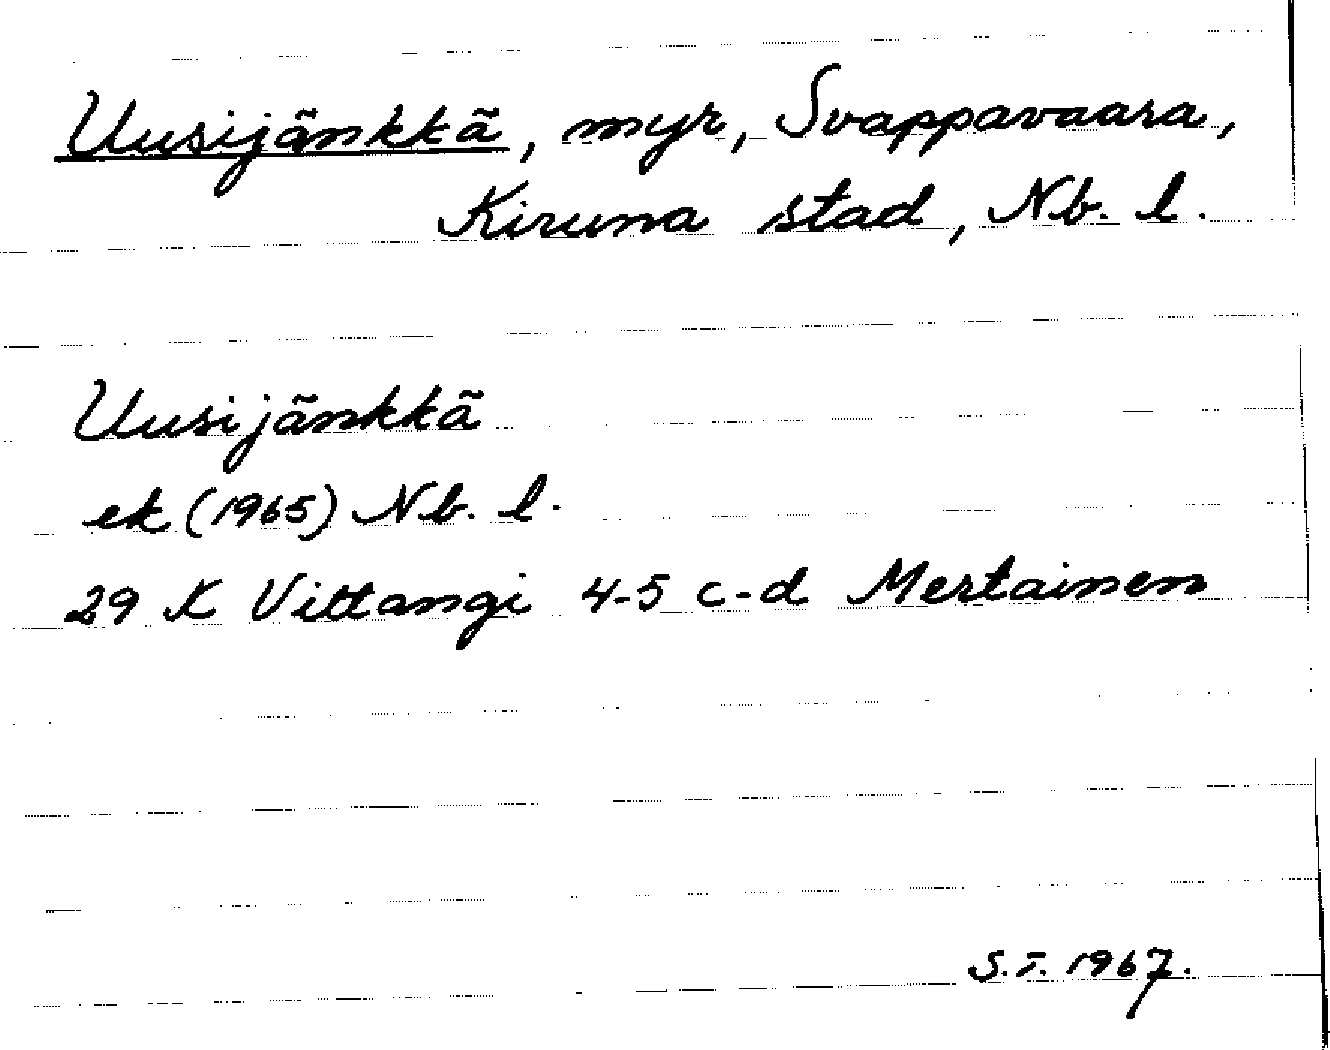 Uusijänkkä, myr, Svappavaara,
Kiruna stad, Nb. l.
Uusijänkkä
ek (1965) Nb. l.
29 K Vittangi 4-5 c-d Mertainen
S.T. 1967.